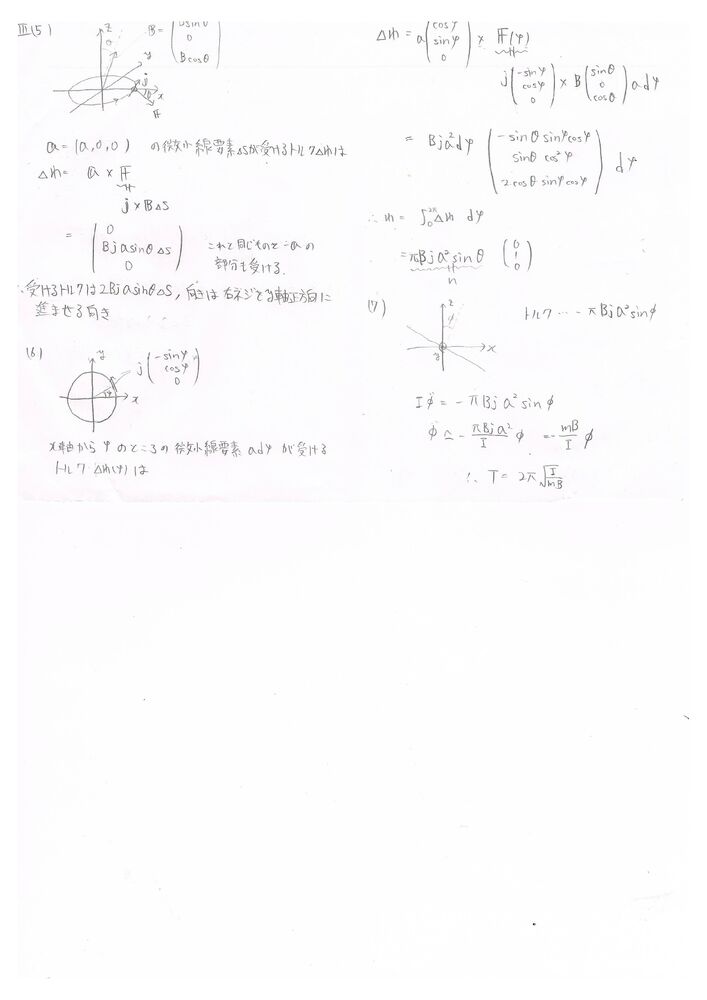 III(5)
z
θ
y
j
φ
x
F
B = ( Bsinθ
0
Bcosθ )
a = (a,0,0) の微小線要素ΔSが受けるトルクΔmは
Δm = a × F
j × BΔS
= ( 0
BjasinθΔS
0 )
これと同じものを-aの
部分も受ける.
∴受けるトルクは2BjasinθΔS, 向きは右ネジとy軸正方向に
進ませる向き
(6)
y
φ
x
j ( -sinφ
cosφ
0 )
x軸から φ のところの 微小線要素 adφ が受ける
トルク Δm(φ)は
Δm = a ( cosφ
sinφ
0 ) × F(φ)
j ( -sinφ
cosφ
0 ) × B ( sinθ
0
cosθ ) adφ
= Bja²dφ ( -sinθ sinφcosφ
sinθ cos²φ
2cosθ sinφcosφ ) dφ
∴ m = ∫₀^2π Δm dφ
= πBja²sinθ ( 0
1
0 )
(7)
z
φ
y
x
トルク … -πBja²sinφ
Iφ̈ = -πBja²sinφ
φ̈ ≃ - πBja²/I φ = - mB/I φ
∴ T = 2π√(I/mB)